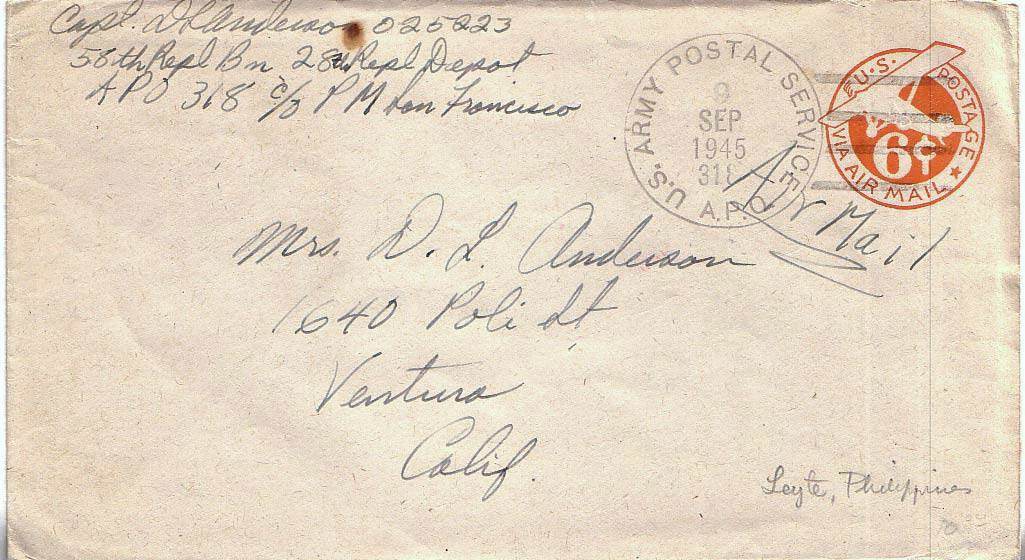 Capt. D L Anderson 025223
58th Repl Bn 28th Repl Depot
APO 318 c/o P M San Francisco
U.S. ARMY POSTAL SERVICE
9
SEP
1945
318
A.P.O.
U.S. POSTAGE
6¢
VIA AIR MAIL
Air Mail
Mrs. D. L. Anderson
1640 Poli St
Ventura
Calif.
Leyte, Philippines